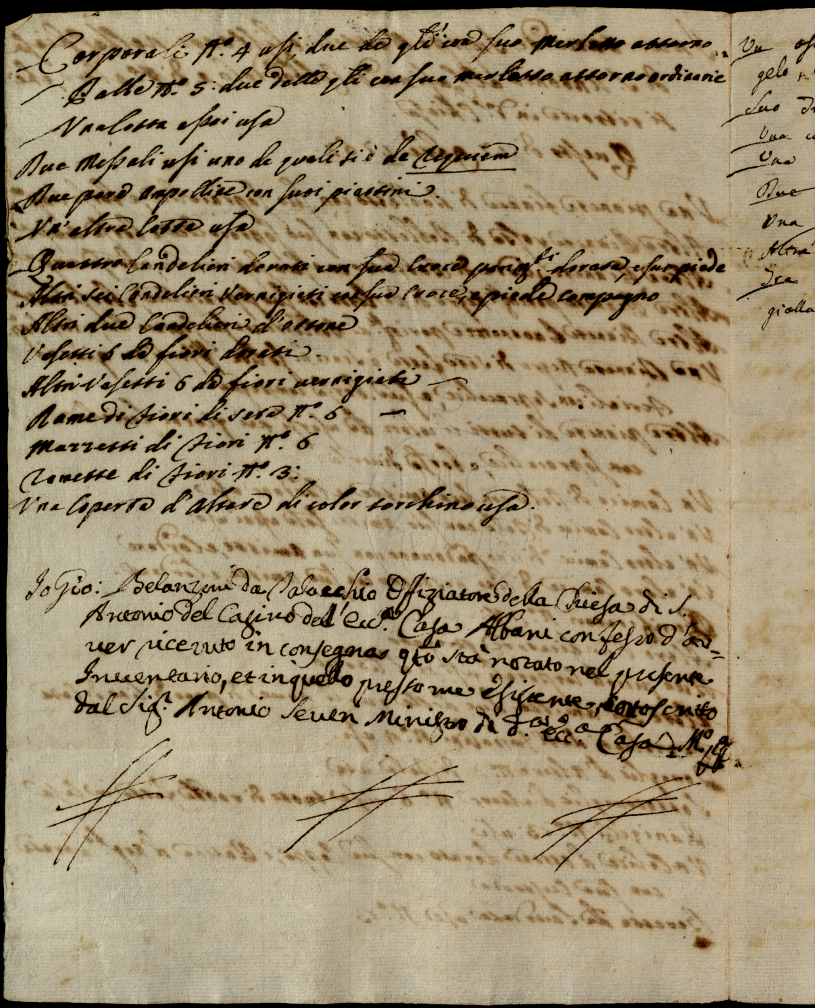 Corporali N.º 4 usi, due de q.li con suo merletto attorno
Palle N.º 5: due delle q.li con sue merletto attorno ordinarie
Una Cotta assai usa
Due Messali usi uno de quali si è da requiem
Due para ampolline con suoi piattini
Un'altra Cotta usa
Quattro Candelieri dorati con sua Croce dorata, e suo piede
Altri sei Candelieri vernigiati con sua Croce, e piede compagno
Altri due Candelieri d'ottone
Vasetti 6 da fiori dorati
Altri Vasetti 6 da fiori vernigiati
Rame di fiori di seta N.º 6
Mazzetti di fiori N.º 6
Zanette di fiori N.º 3:
Una Coperta d'Altare di color torchino usa.
Io Gio: Belanzoni da Offiziatore della Chiesa di S.
Antonio del Casino dell'Ecc.ma Casa Albani confesso d'av-
ver ricevuto in consegna q.to stà notato nel presente
Inventario, et in quello presso me esistente, sottoscritto
dal Sig.r Antonio Seven Ministro di d.a Ecc.a Casa
Un
gelo
Suo
Una
Una
Due
Una
Altra
Tre
gialla